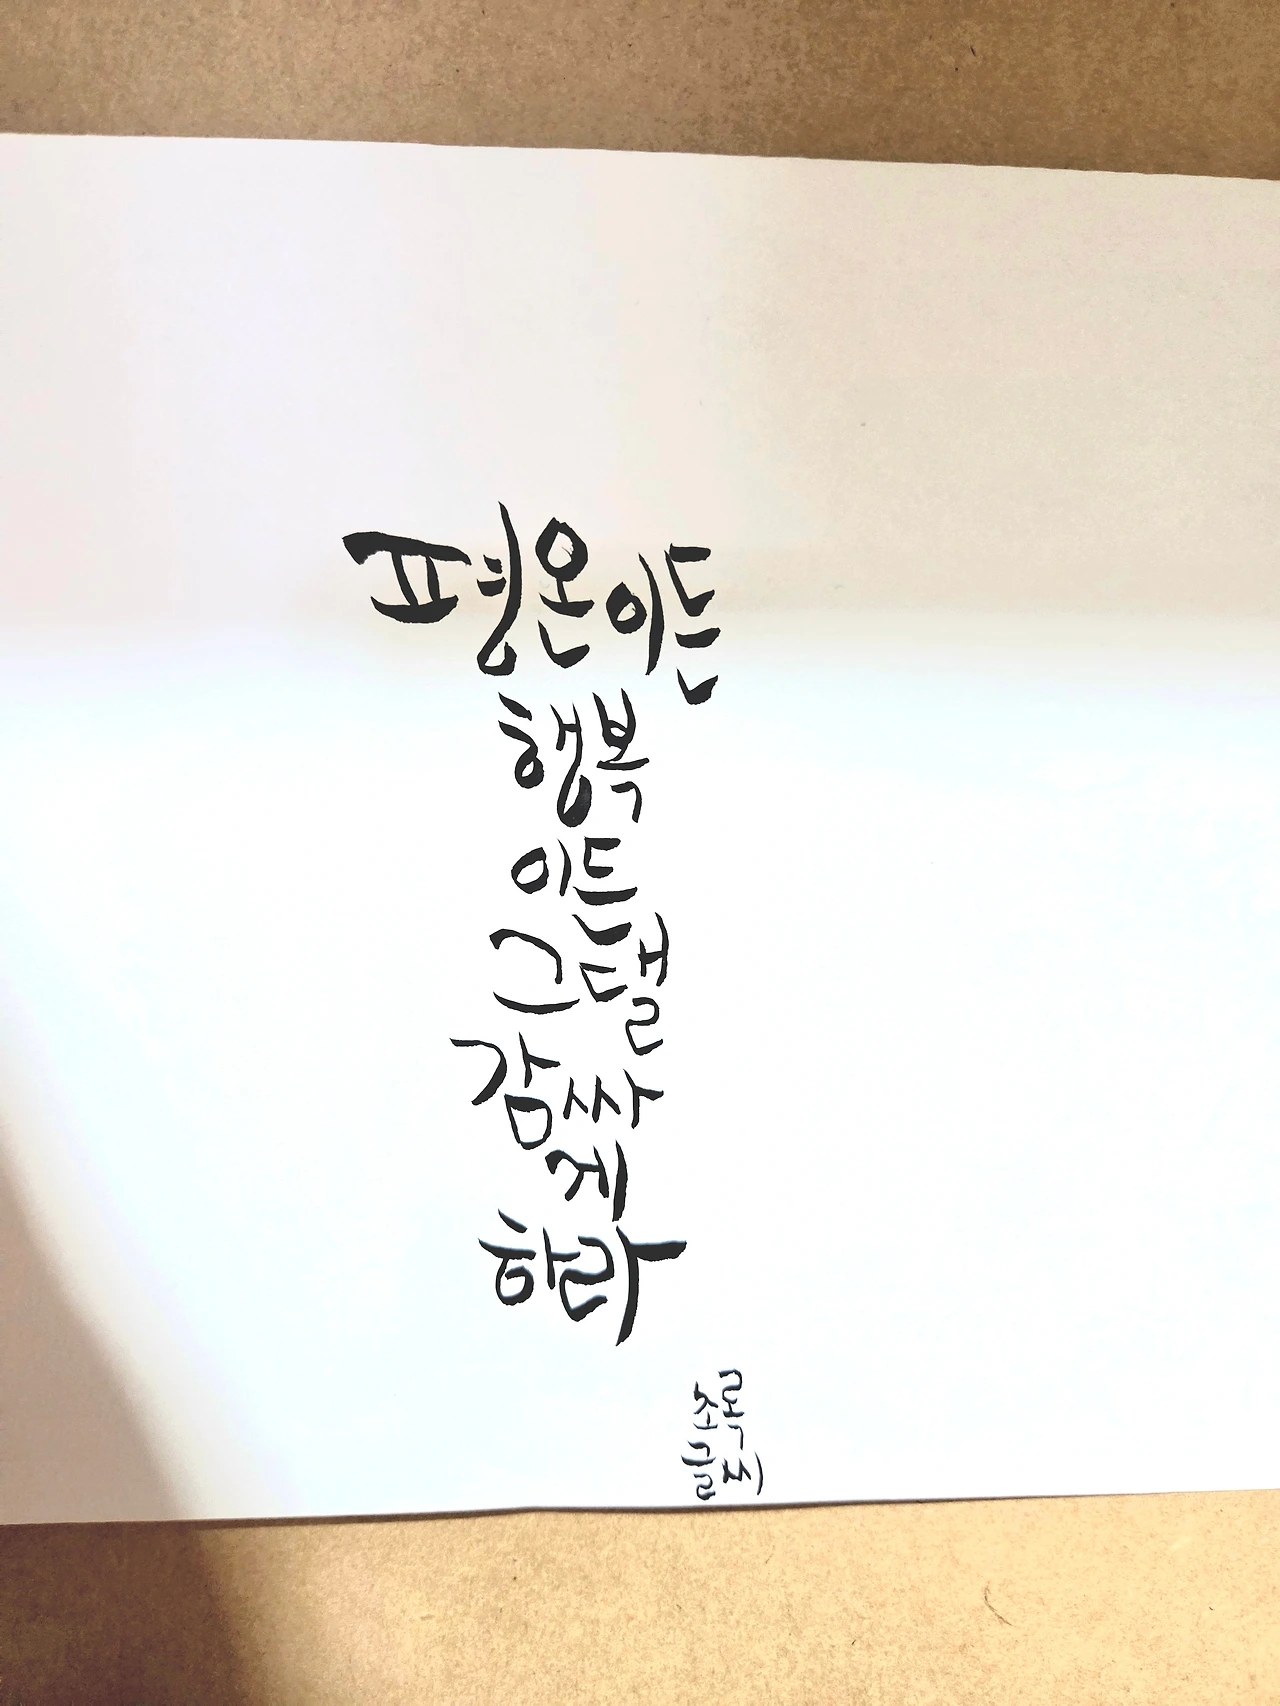 평온이든
행복
이든
그댈
감싸
게
하라
초록
글씨